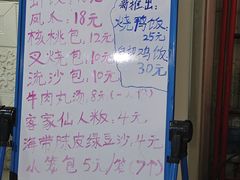 凤爪:18元
核桃包,12元
叉烧包,10元
流沙包,10元
牛肉丸汤8元(一、个)
客家仙人粄,4元
海带陈皮绿豆沙,4元
小笼包5元/笼(7个)
推出:
烧鸭饭
25元
鸡饭
30元